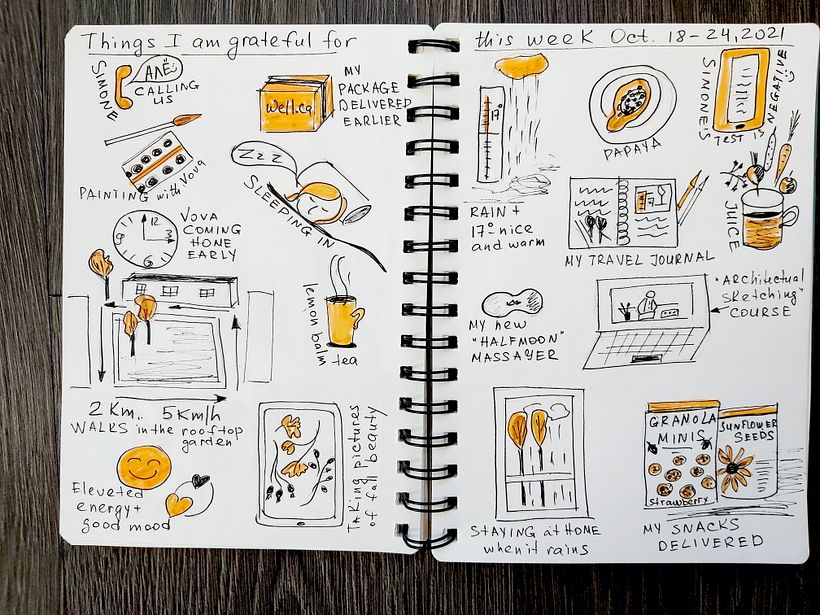 Things I am grateful for
SIMONE
АЛЁ
CALLING
US
well.ca
MY
PACKAGE
DELIVERED
EARLIER
PAINTING with Vova
Zzz
SLEEPING IN
12
3
6
9
VOVA
COMING
HOME
EARLY
lemon balm
tea
2 Km.. 5 Km/h
WALKS in the rooftop
garden
Elevated
energy+
good mood
TAKING pictures
of fall beauty
this week Oct. 18-24, 2021
17°
RAIN +
17° nice
and warm
PAPAYA
SIMONE'S
TEST IS
NEGATIVE
JUICE
MY TRAVEL JOURNAL
MY new
"HALFMOON"
MASSAGER
"ARCHITECTUAL
SKETCHING"
COURSE
STAYING at HOME
when it rains
GRANOLA
MINIS
Strawberry
SUNFLOWER
SEEDS
MY SNACKS
DELIVERED